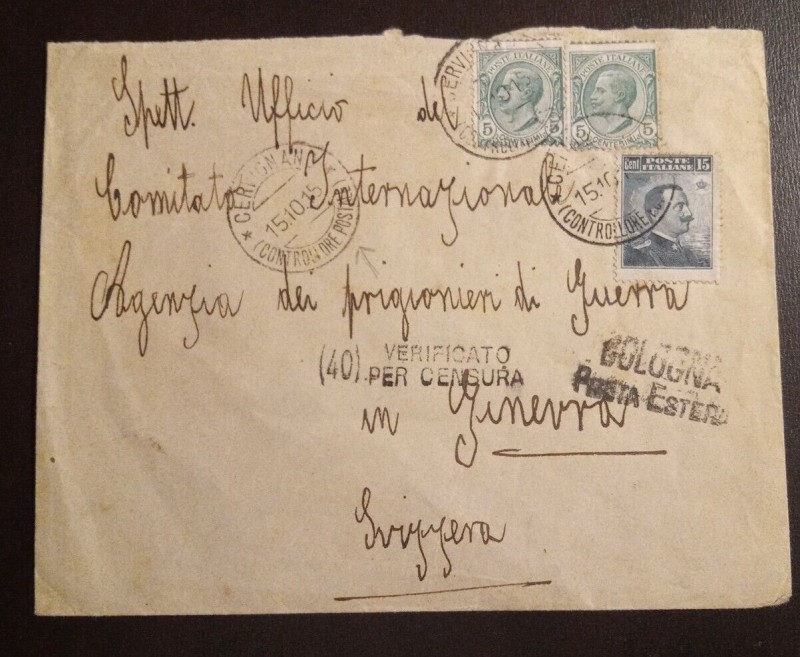 POSTE ITALIANE
5 5
CENTESIMI
POSTE ITALIANE
5 5
CENTESIMI
Cent POSTE ITALIANE 15
Spett. Ufficio del
Comitato Internazionale
CERVIGNANO
15.10.15
(CONTROLLORE POSTALE)
15.10
(CONTROLLORE
Agenzia dei prigionieri di Guerra
(40) VERIFICATO
PER CENSURA
BOLOGNA
POSTA ESTERA
in Ginevra
Svizzera